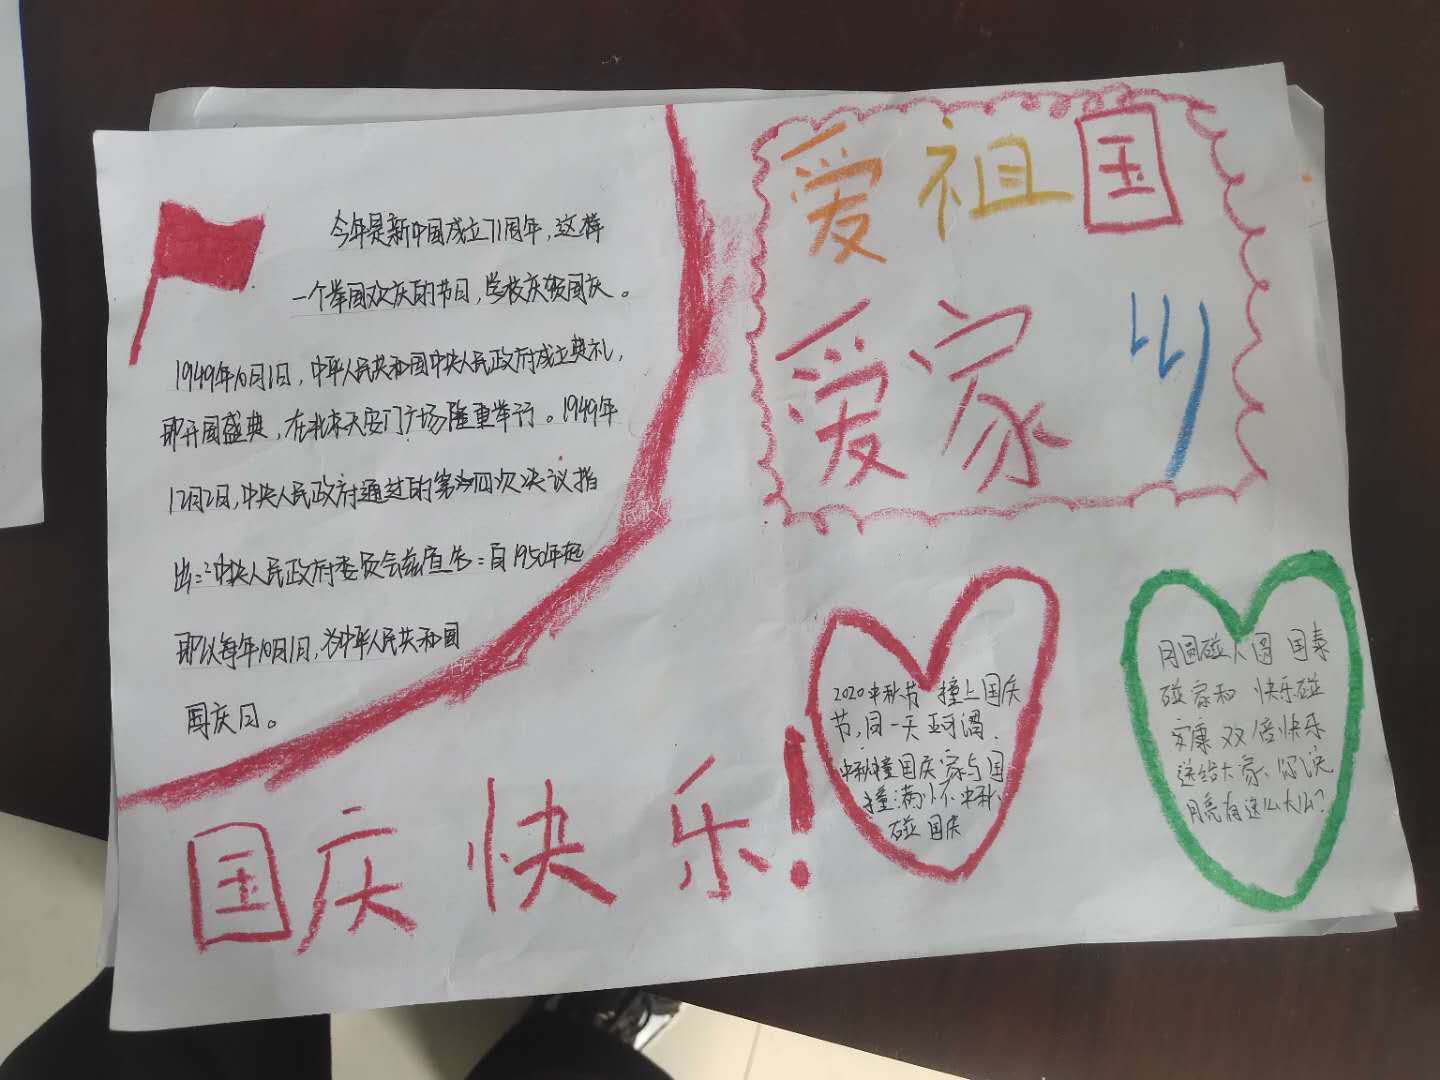 今年是新中国成立71周年,这样
一个举国欢庆的节日,学校庆颂国庆。
1949年10月1日,中华人民共和国中央人民政府成立典礼,
即开国盛典,在北京天安门广场隆重举行。1949年
12月2日,中央人民政府通过的第四次决议指
出:"中央人民政府委员会兹宣告:自1950年起
即以每年10月1日,为中华人民共和国
国庆日。
爱祖国
爱家川
2020中秋节 撞上国庆
节,同一天 巧遇、
中秋撞国庆 家与国
撞满怀 中秋、
碰 国庆
月圆碰人圆 国泰
碰家和 快乐碰
安康 双倍快乐
送给大家、你说
月亮有这么大么?
国庆快乐!